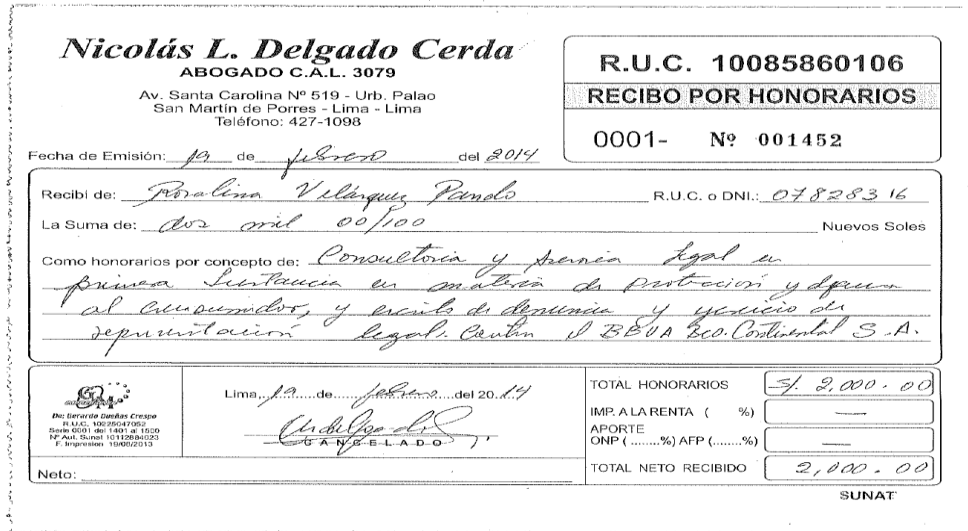 Nicolás L. Delgado Cerda
ABOGADO C.A.L. 3079
Av. Santa Carolina Nº 519 - Urb. Palao
San Martín de Porres - Lima - Lima
Teléfono: 427-1098
R.U.C. 10085860106
RECIBO POR HONORARIOS
0001- Nº 001452
Fecha de Emisión: 19 de febrero del 2014
Recibí de: Rosalina Velárquez Pando R.U.C. o DNI.: 07828316
La Suma de: dos mil 00/100 Nuevos Soles
Como honorarios por concepto de: Consultoria y legal en
primera Instancia en materia de protección y
al consumidor, y escrito de denuncia y de
legal. Contra el BBVA Bco. Continental S.A.
De: Gerardo Dueñas Crespo
R.U.C. 10225047052
Serie 0001 del 1401 al 1500
Nº Aut. Sunat 10112884023
F. Impresion 19/08/2013
Lima, 19 de febrero del 2014
CANCELADO
Neto:
TOTAL HONORARIOS S/. 2,000.00
IMP. A LA RENTA ( %) —
APORTE
ONP (........%) AFP (........%) —
TOTAL NETO RECIBIDO 2,000.00
SUNAT